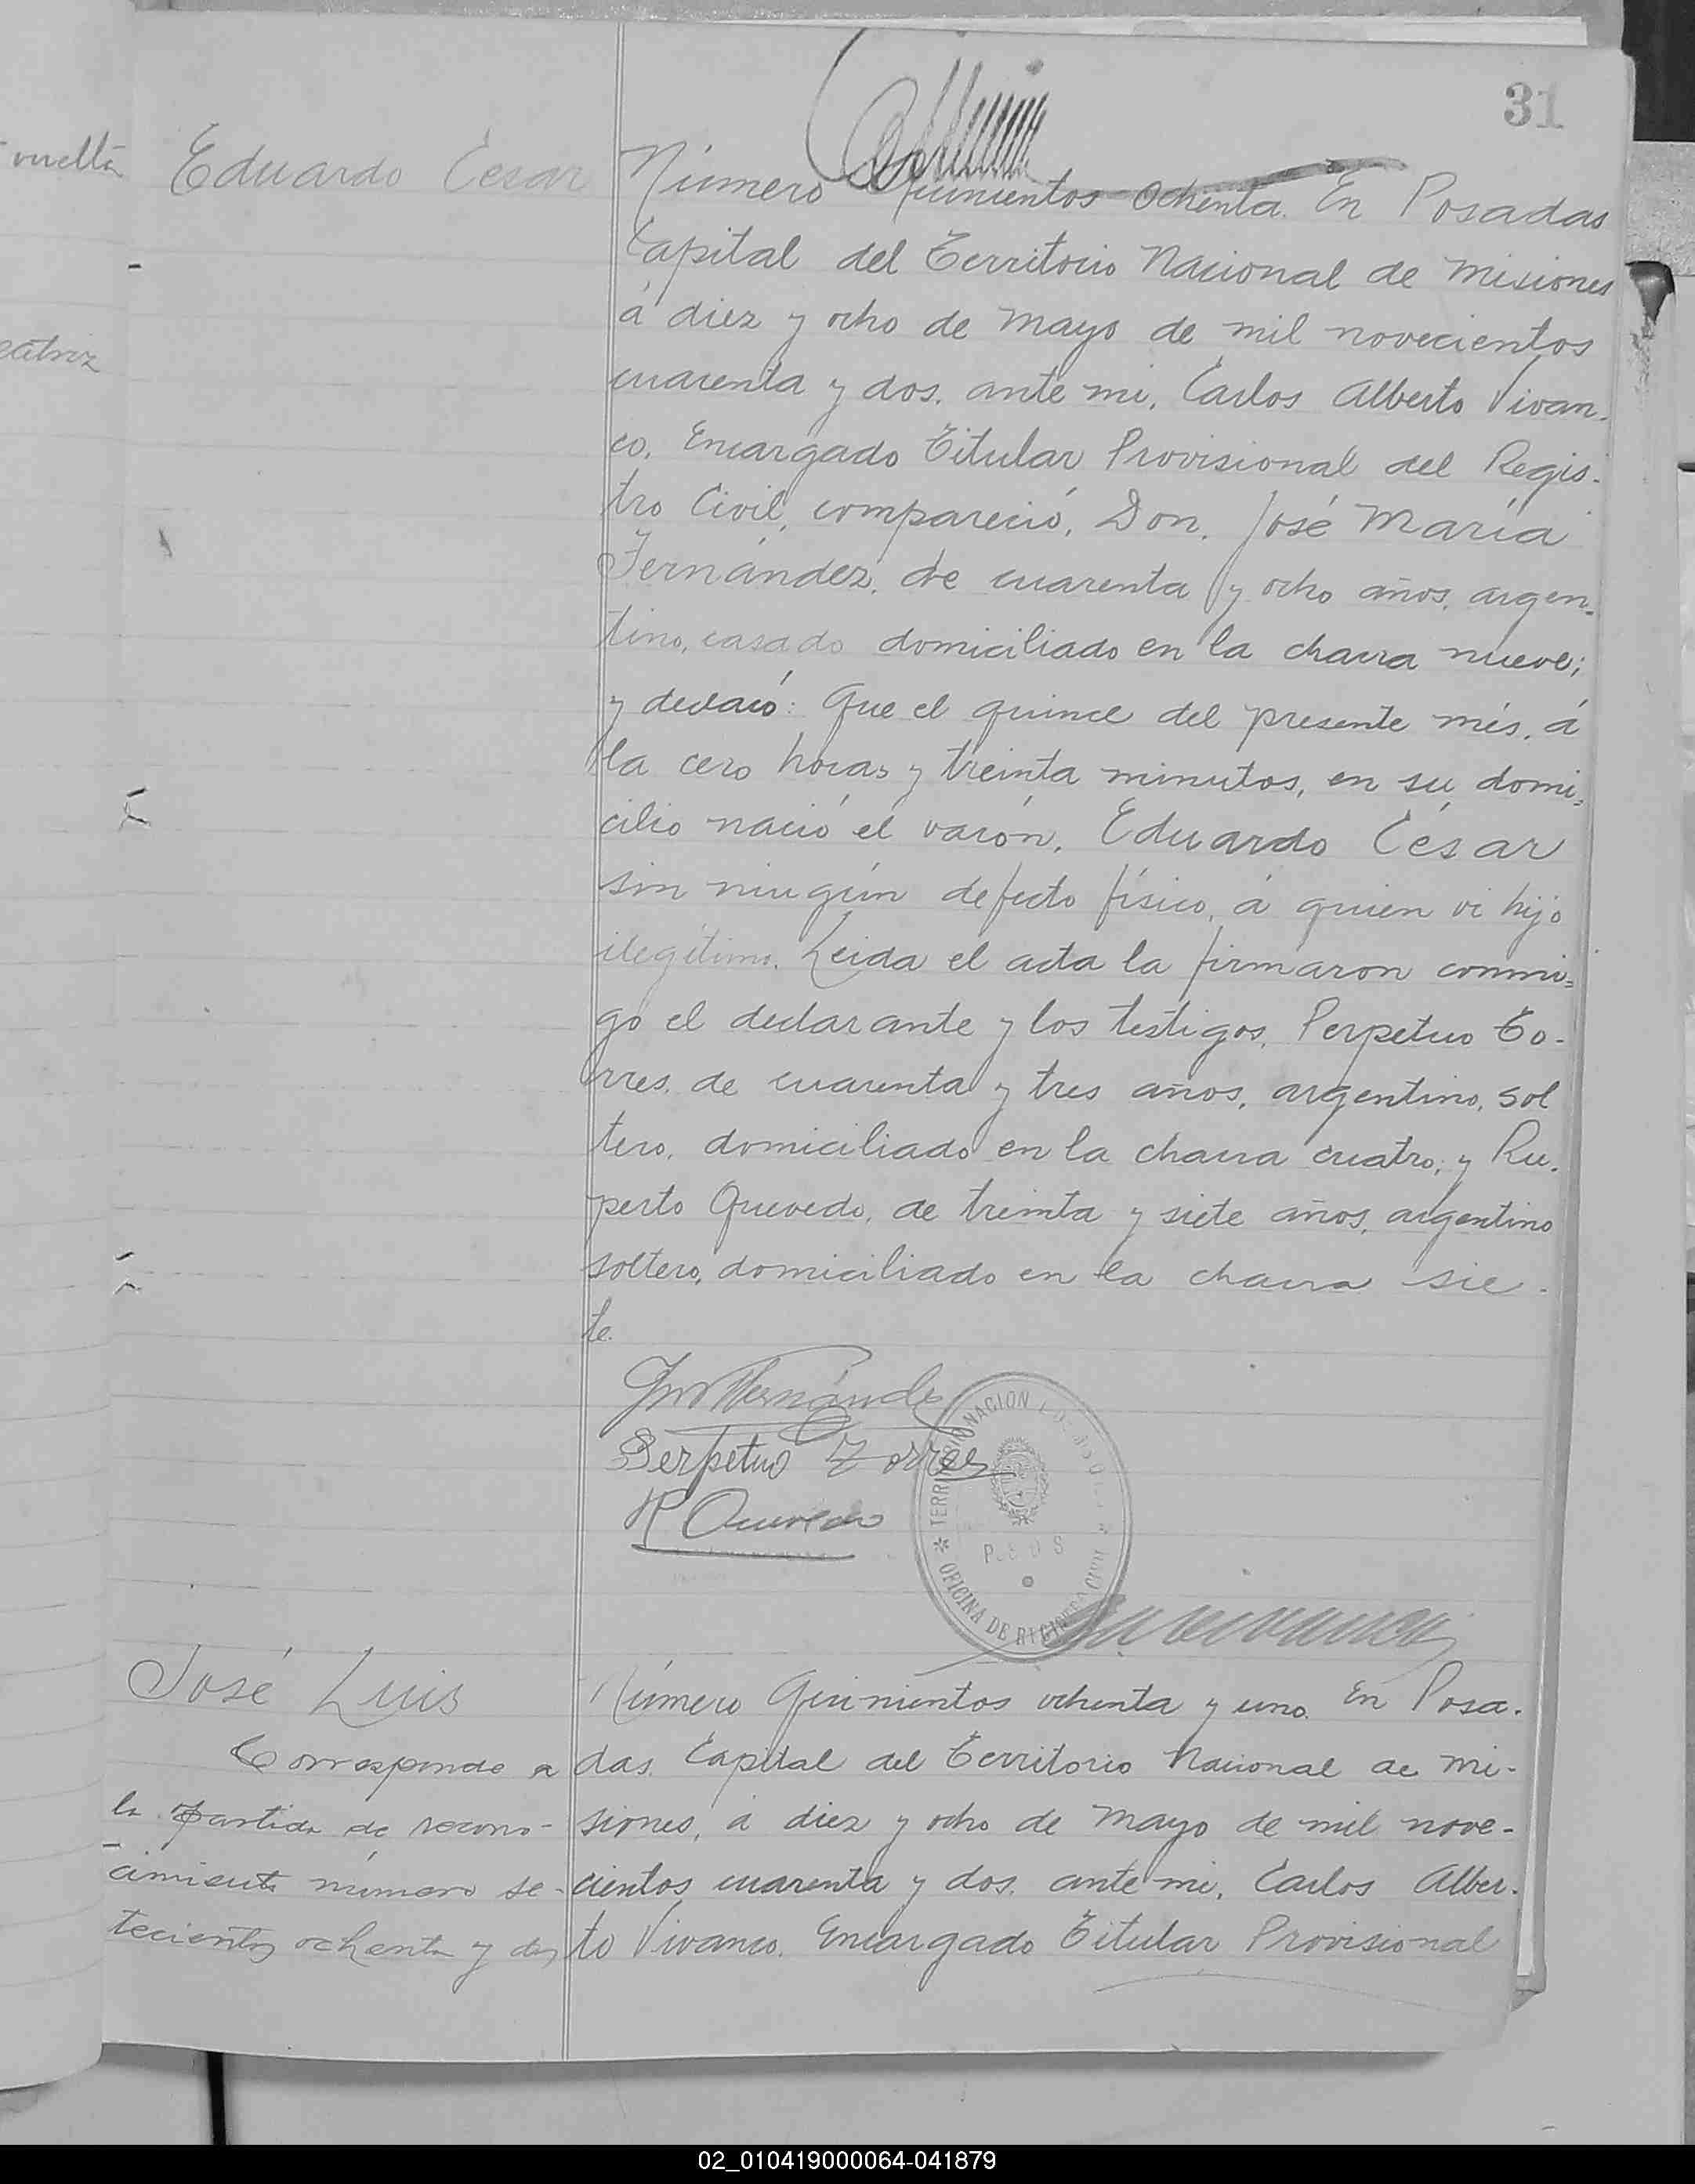 31
vuelta
Eduardo César
Número Quinientos ochenta. En Posadas
Capital del Territorio Nacional de Misiones
á diez y ocho de Mayo de mil novecientos
cuarenta y dos, ante mi, Carlos Alberto Vivan-
co, Encargado Titular Provisional del Regis-
tro Civil, compareció, Don, José María
Fernández, de cuarenta y ocho años, argen-
tino, casado domiciliado en la chacra nueve;
y declaró: Que el quince del presente més, á
la cero horas y treinta minutos, en su domi=
cilio nació el varón, Eduardo César
sin ningún defecto físico, á quien vi hijo
ilegítimo. Leida el acta la firmaron conmi=
go el declarante y los testigos, Perpetuo To-
rres, de cuarenta y tres años, argentino, sol
tero, domiciliado en la chacra cuatro; y Ru-
perto Quevedo, de treinta y siete años, argentino
soltero, domiciliado en la chacra sie-
te.
Perpetuo Torres
R Quevedo
OFICINA DE REGISTRO CIVIL
José Luis
Corresponde a
la partida de recono-
cimiento número se-
tecientos ochenta y dos
Número Quinientos ochenta y uno. En Posa-
das, Capital del Territorio Nacional de Mi-
siones, á diez y ocho de Mayo de mil nove-
cientos cuarenta y dos, ante mi, Carlos Alber-
to Vivanco, Encargado Titular Provisional
02_010419000064-041879